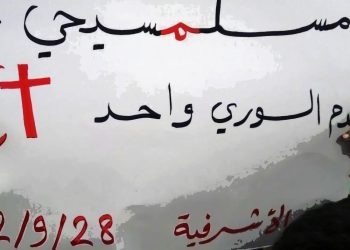 مسلمسيحي
دم السوري واحد
الأشرفية 2/9/28